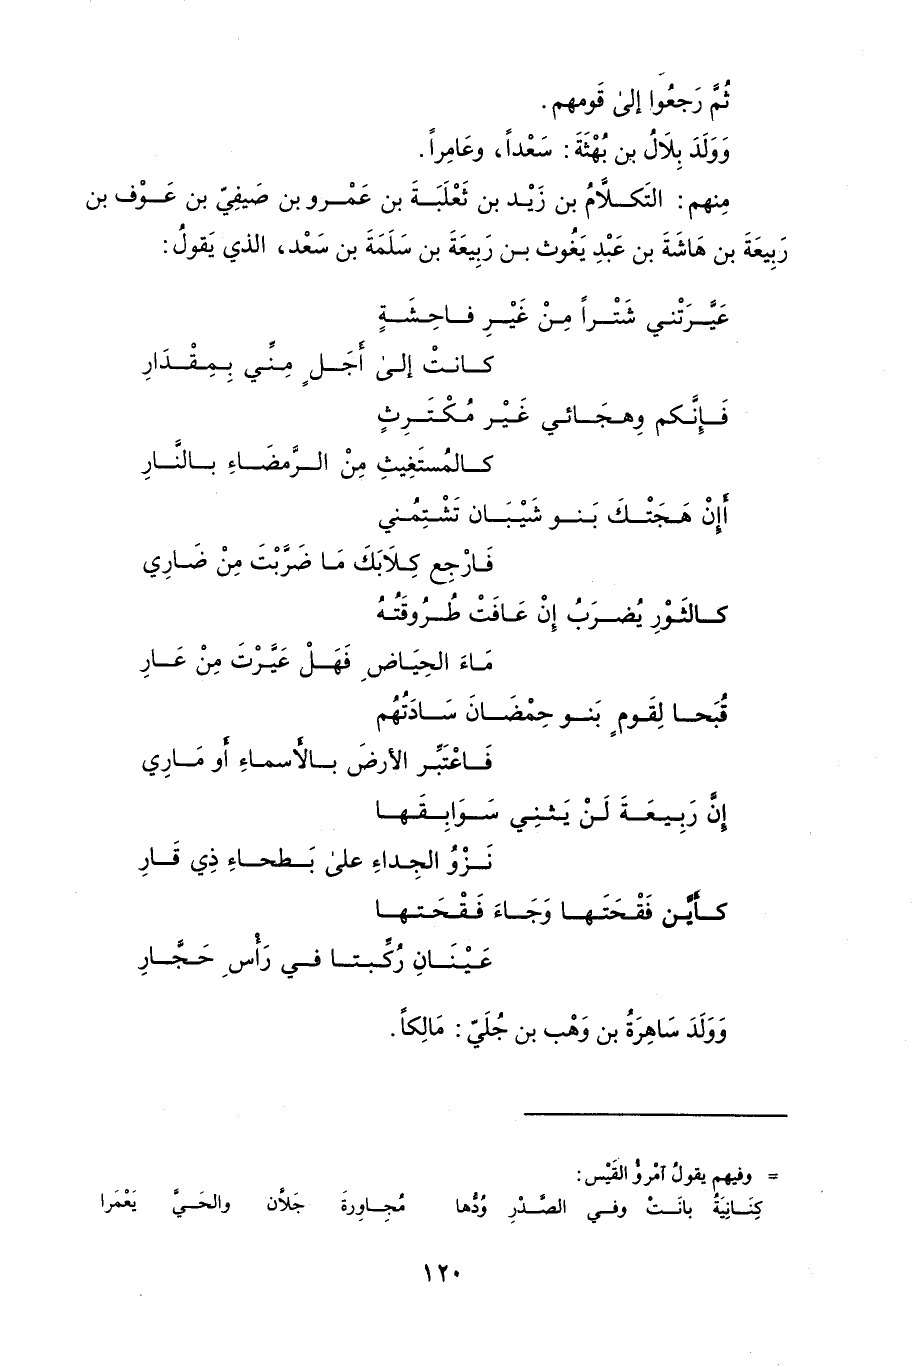 ثُمَّ رَجعُوا إلىٰ قَومهم .
وَوَلَدَ بِلَالُ بن بُهْثَةَ : سَعْداً، وعَامِراً .
مِنهم : التكلَّامُ بن زَيْد بن ثَعْلَبَةَ بن عَمْرو بن صَيفيّ بن عَوْف بن
رَبِيعَةَ بن هَاشَةَ بن عَبْدِ يَغُوث بن رَبِيعَةَ بن سَلَمَةَ بن سَعْد، الذي يَقولُ :
عَيَّرَتْني شَتْراً مِنْ غَيْرِ فاحِشَةٍ
كانتْ إلىٰ أَجَلٍ مِنّي بِمِقْدَارِ
فَإِنَّكم وهجَائي غَيْر مُكْتَرِثٍ
كالمُستَغِيثِ مِنْ الرَّمضَاءِ بالنَّارِ
أَإِنْ هَجَتْكَ بَنو شَيْبَان تَشْتِمُني
فَارْجِع كِلَابَكَ مَا ضَرَّبْتَ مِنْ ضَارِي
كالثَوْرِ يُضرَبُ إِنْ عَافَتْ طُرُوقَتُهُ
مَاءَ الحِيَاضِ فَهَلْ عَيَّرْتَ مِنْ عَارِ
قُبَحا لِقَومٍ بَنو حِمْضَانَ سَادَتُهُم
فَاعْتَبِّر الأرضَ بالأَسماءِ أَو مَارِي
إِنَّ رَبِيعَةَ لَنْ يَثنِي سَوَابِقَها
نَزْوُ الجِداءِ علىٰ بَطحاءِ ذِي قَارِ
كأَيَّن فَقْحَتَها وَجَاءَ فَقْحَتها
عَيْنَانِ رُكِّبتا في رَأْسِ حَجَّارِ
وَوَلَدَ سَاهِرَةُ بن وَهْب بن جُلَيّ : مَالِكاً .
= وفيهم يقولُ آمْرؤُ القَيْس :
كِنَانِيَةٌ بانَتْ وفي الصَّدْرِ وُدُّها مُجاوِرةَ جَلاَّن والحَيَّ يَعْمَرا
١٢٠